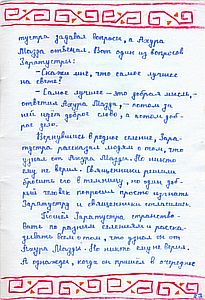 тустра задавал вопросы, а Ахура
Мазда отвечал. Вот один из вопросов
Заратустры:
– Скажи мне, что самое лучшее
на свете?
– Самое лучшее – это добрая мысль, –
ответил Ахура Мазда, – потом за
ней идёт доброе слово, а потом доб-
рое дело.
Вернувшись в родное селение, Зара-
тустра рассказал людям о том, что
узнал от Ахура Мазды. Но никто
ему не верил. Священники решили
бросить его в темницу, но один доб-
рый человек попросил просто изгнать
Заратустру и священники согласились.
Пошёл Заратустра странство-
вать по разным селениям и расска-
зывать всем о том, что узнал он от
Ахура Мазды. Но никто ему не верил.
А однажды, когда он пришёл в очередное